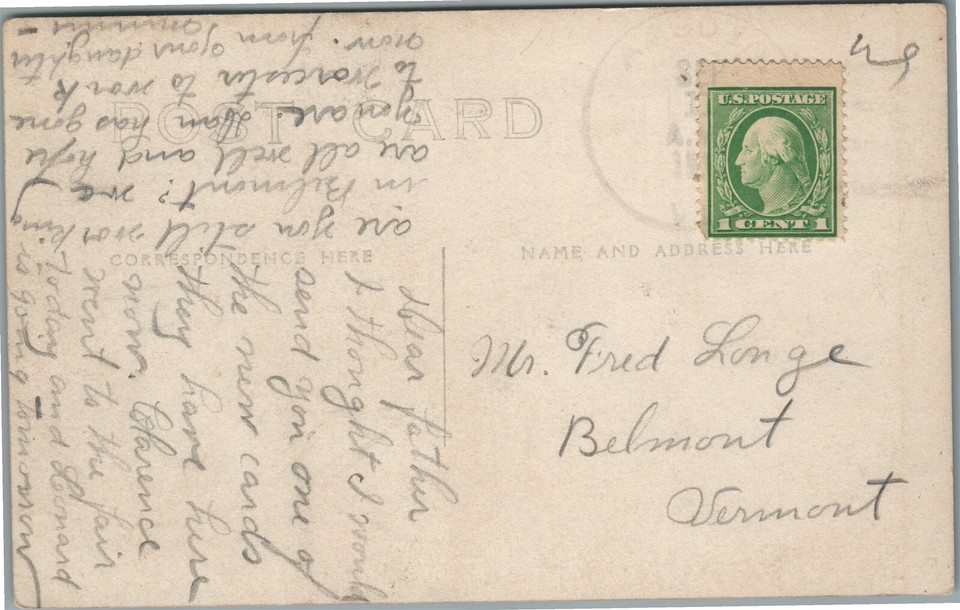 POST CARD
CORRESPONDENCE HERE
NAME AND ADDRESS HERE
U.S. POSTAGE
1 CENT 1
Mr. Fred Longe
Belmont
Vermont
Dear father
I thought I would
send you one of
the new cards
they have here
now. Clarence
went to the fair
today and Leonard
is going tomorrow
are you still working
in Belmont? we
are all well and hope
you are. Dan has gone
to worcester to work
now. from your daughter